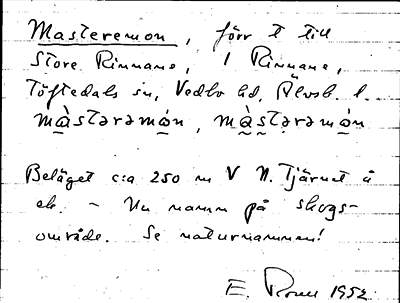 Masteremon, förr t till
Store Rinnane, 1 Rinnane,
Töftedals sn, Vedbo hd, Älvsb. l.
màstərəmón, màstərəmón
Beläget c:a 250 m V N. Tjärnet å
ek. - Nu namn på skogs-
område. Se naturnamnen!
E. 1952